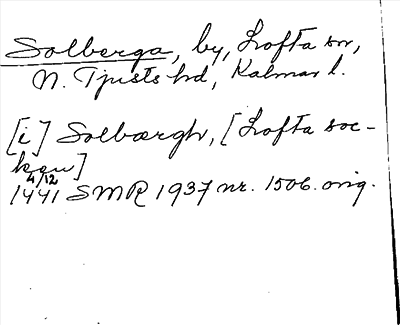 Solberga, by, Lofta sn,
N. Tjusts hd, Kalmar l.
[i] Solbærgh, [Lofta soc-
ken]
4/12
1441 SMR 1937 nr. 1506. orig.